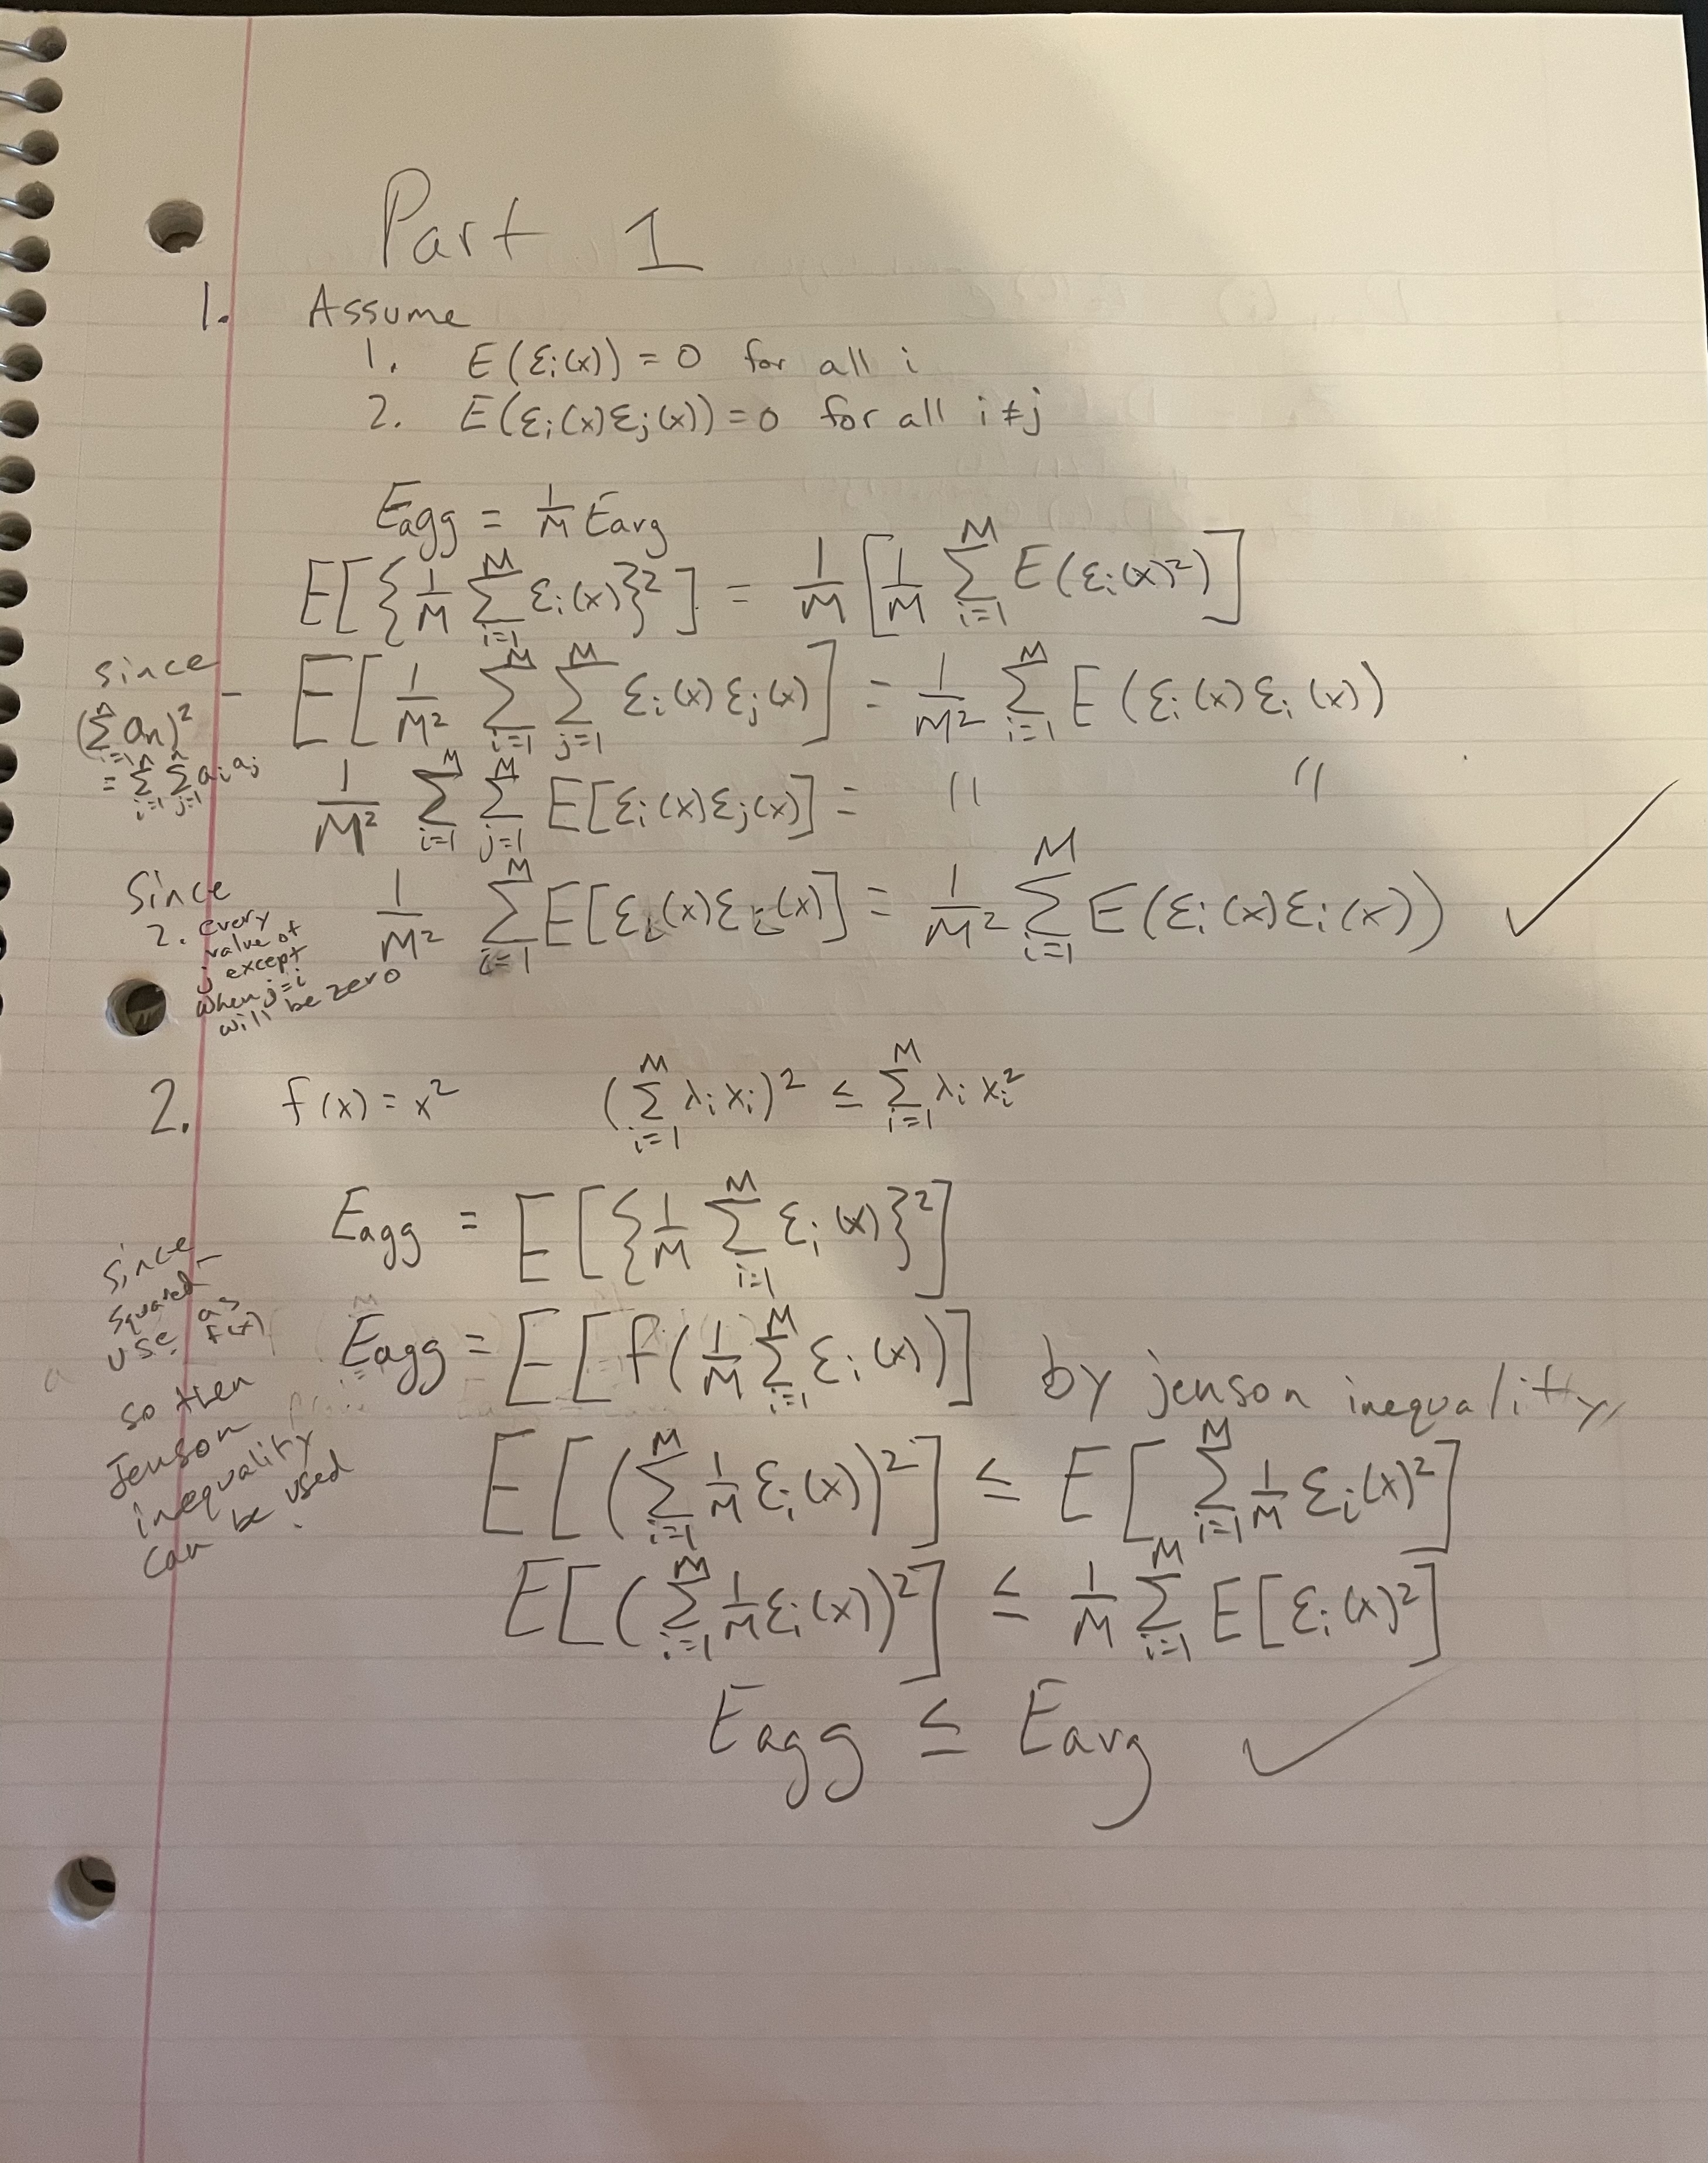 Part 1
1. Assume
1. E(ε_i(x)) = 0 for all i
2. E(ε_i(x)ε_j(x)) = 0 for all i ≠ j
E_agg = 1/M E_avg
E[{1/M Σ_{i=1}^{M} ε_i(x)}²] = 1/M [1/M Σ_{i=1}^{M} E(ε_i(x)²)]
since (Σ_{i=1}^{n} a_n)² = Σ_{i=1}^{n} Σ_{j=1}^{n} a_i a_j
– E[1/M² Σ_{i=1}^{M} Σ_{j=1}^{M} ε_i(x) ε_j(x)] = 1/M² Σ_{i=1}^{M} E(ε_i(x) ε_i(x))
1/M² Σ_{i=1}^{M} Σ_{j=1}^{M} E[ε_i(x)ε_j(x)] = " "
Since
2. every
value of
j except
when j=i
will be zero
1/M² Σ_{i=1}^{M} E[ε_i(x)ε_i(x)] = 1/M² Σ_{i=1}^{M} E(ε_i(x)ε_i(x)) ✓
2. f(x) = x² (Σ_{i=1}^{M} λ_i x_i)² ≤ Σ_{i=1}^{M} λ_i x_i²
E_agg = E[{1/M Σ_{i=1}^{M} ε_i(x)}²]
since
squared –
use as
f(x)
so then
Jenson
inequality
can be used.
E_agg = E[f(1/M Σ_{i=1}^{M} ε_i(x))] by jenson inequality,
E[(Σ_{i=1}^{M} 1/M ε_i(x))²] ≤ E[Σ_{i=1}^{M} 1/M ε_i(x)²]
E[(Σ_{i=1}^{M} 1/M ε_i(x))²] ≤ 1/M Σ_{i=1}^{M} E[ε_i(x)²]
E_agg ≤ E_avg ✓